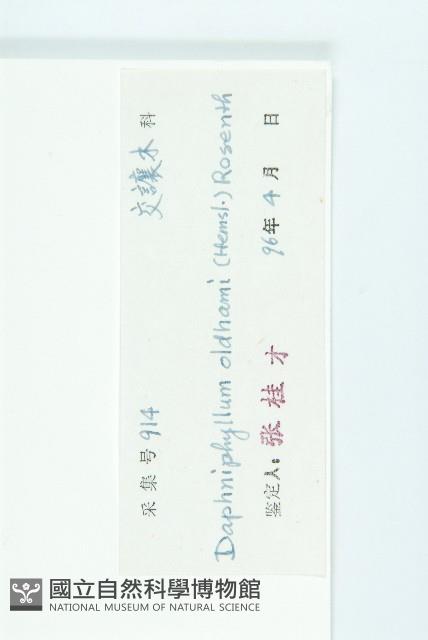 采集号 914 交讓木 科
Daphniphyllum oldhami (Hemsl.) Rosenth
鉴定人: 張桂才 96年4月 日
國立自然科學博物館
NATIONAL MUSEUM OF NATURAL SCIENCE